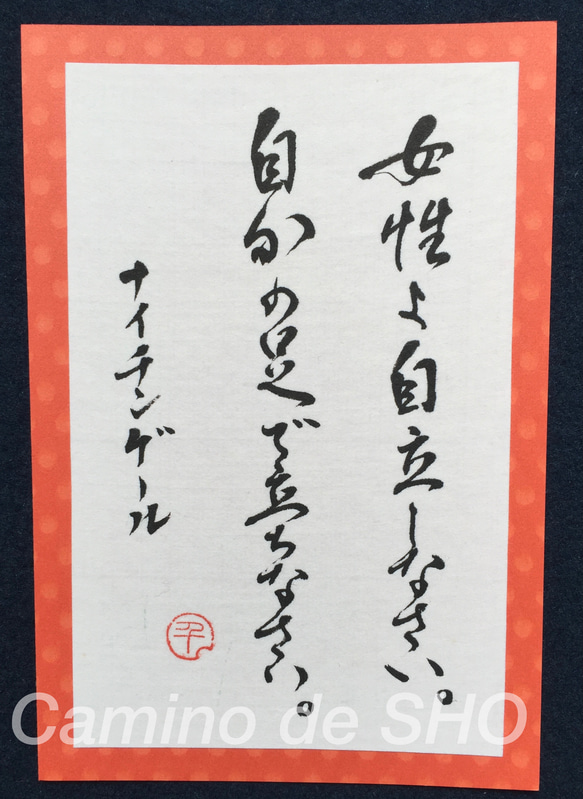 女性よ自立しなさい。
自分の足で立ちなさい。
ナイチンゲール
Camino de SHO